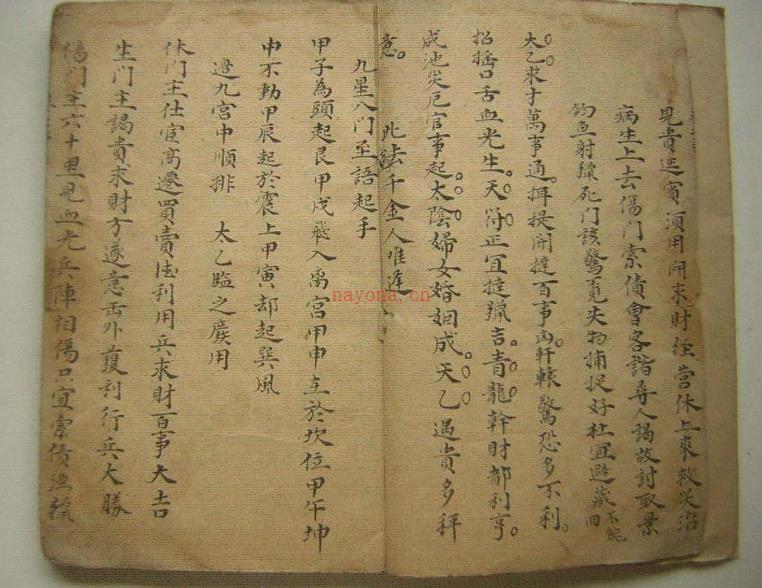 見貴迎賓須用開求財經营休上來救災治
病生上去傷門索債會客諧尋人謁故討取景
釣魚射獵死門該驚覓失物捕捉好杜宜避藏不能回
太乙求才萬事通。揖提開撻百事凶軒轅驚恐多不利。
招揺口舌血光生。天符正宜撻獵吉。青龍幹財都利亨。
咸池災厄官事起。太陰婦女婚姻成。天乙遇貴多秤
意。 此法千金人难逢
九星八门至語起手
甲子為頭起艮甲戌飛入离宫甲申主於坎位甲午坤
申不動甲辰起於震上甲寅却起巽風
遊九宫中順排 太乙臨之廣用
休门主仕宦高遷買賣德利用兵求財百事大吉
生門主謁貴求財方遂意出外獲利行兵大勝
傷門主六十里見血光兵陣相傷只宜索債漁猟
nayona.cn